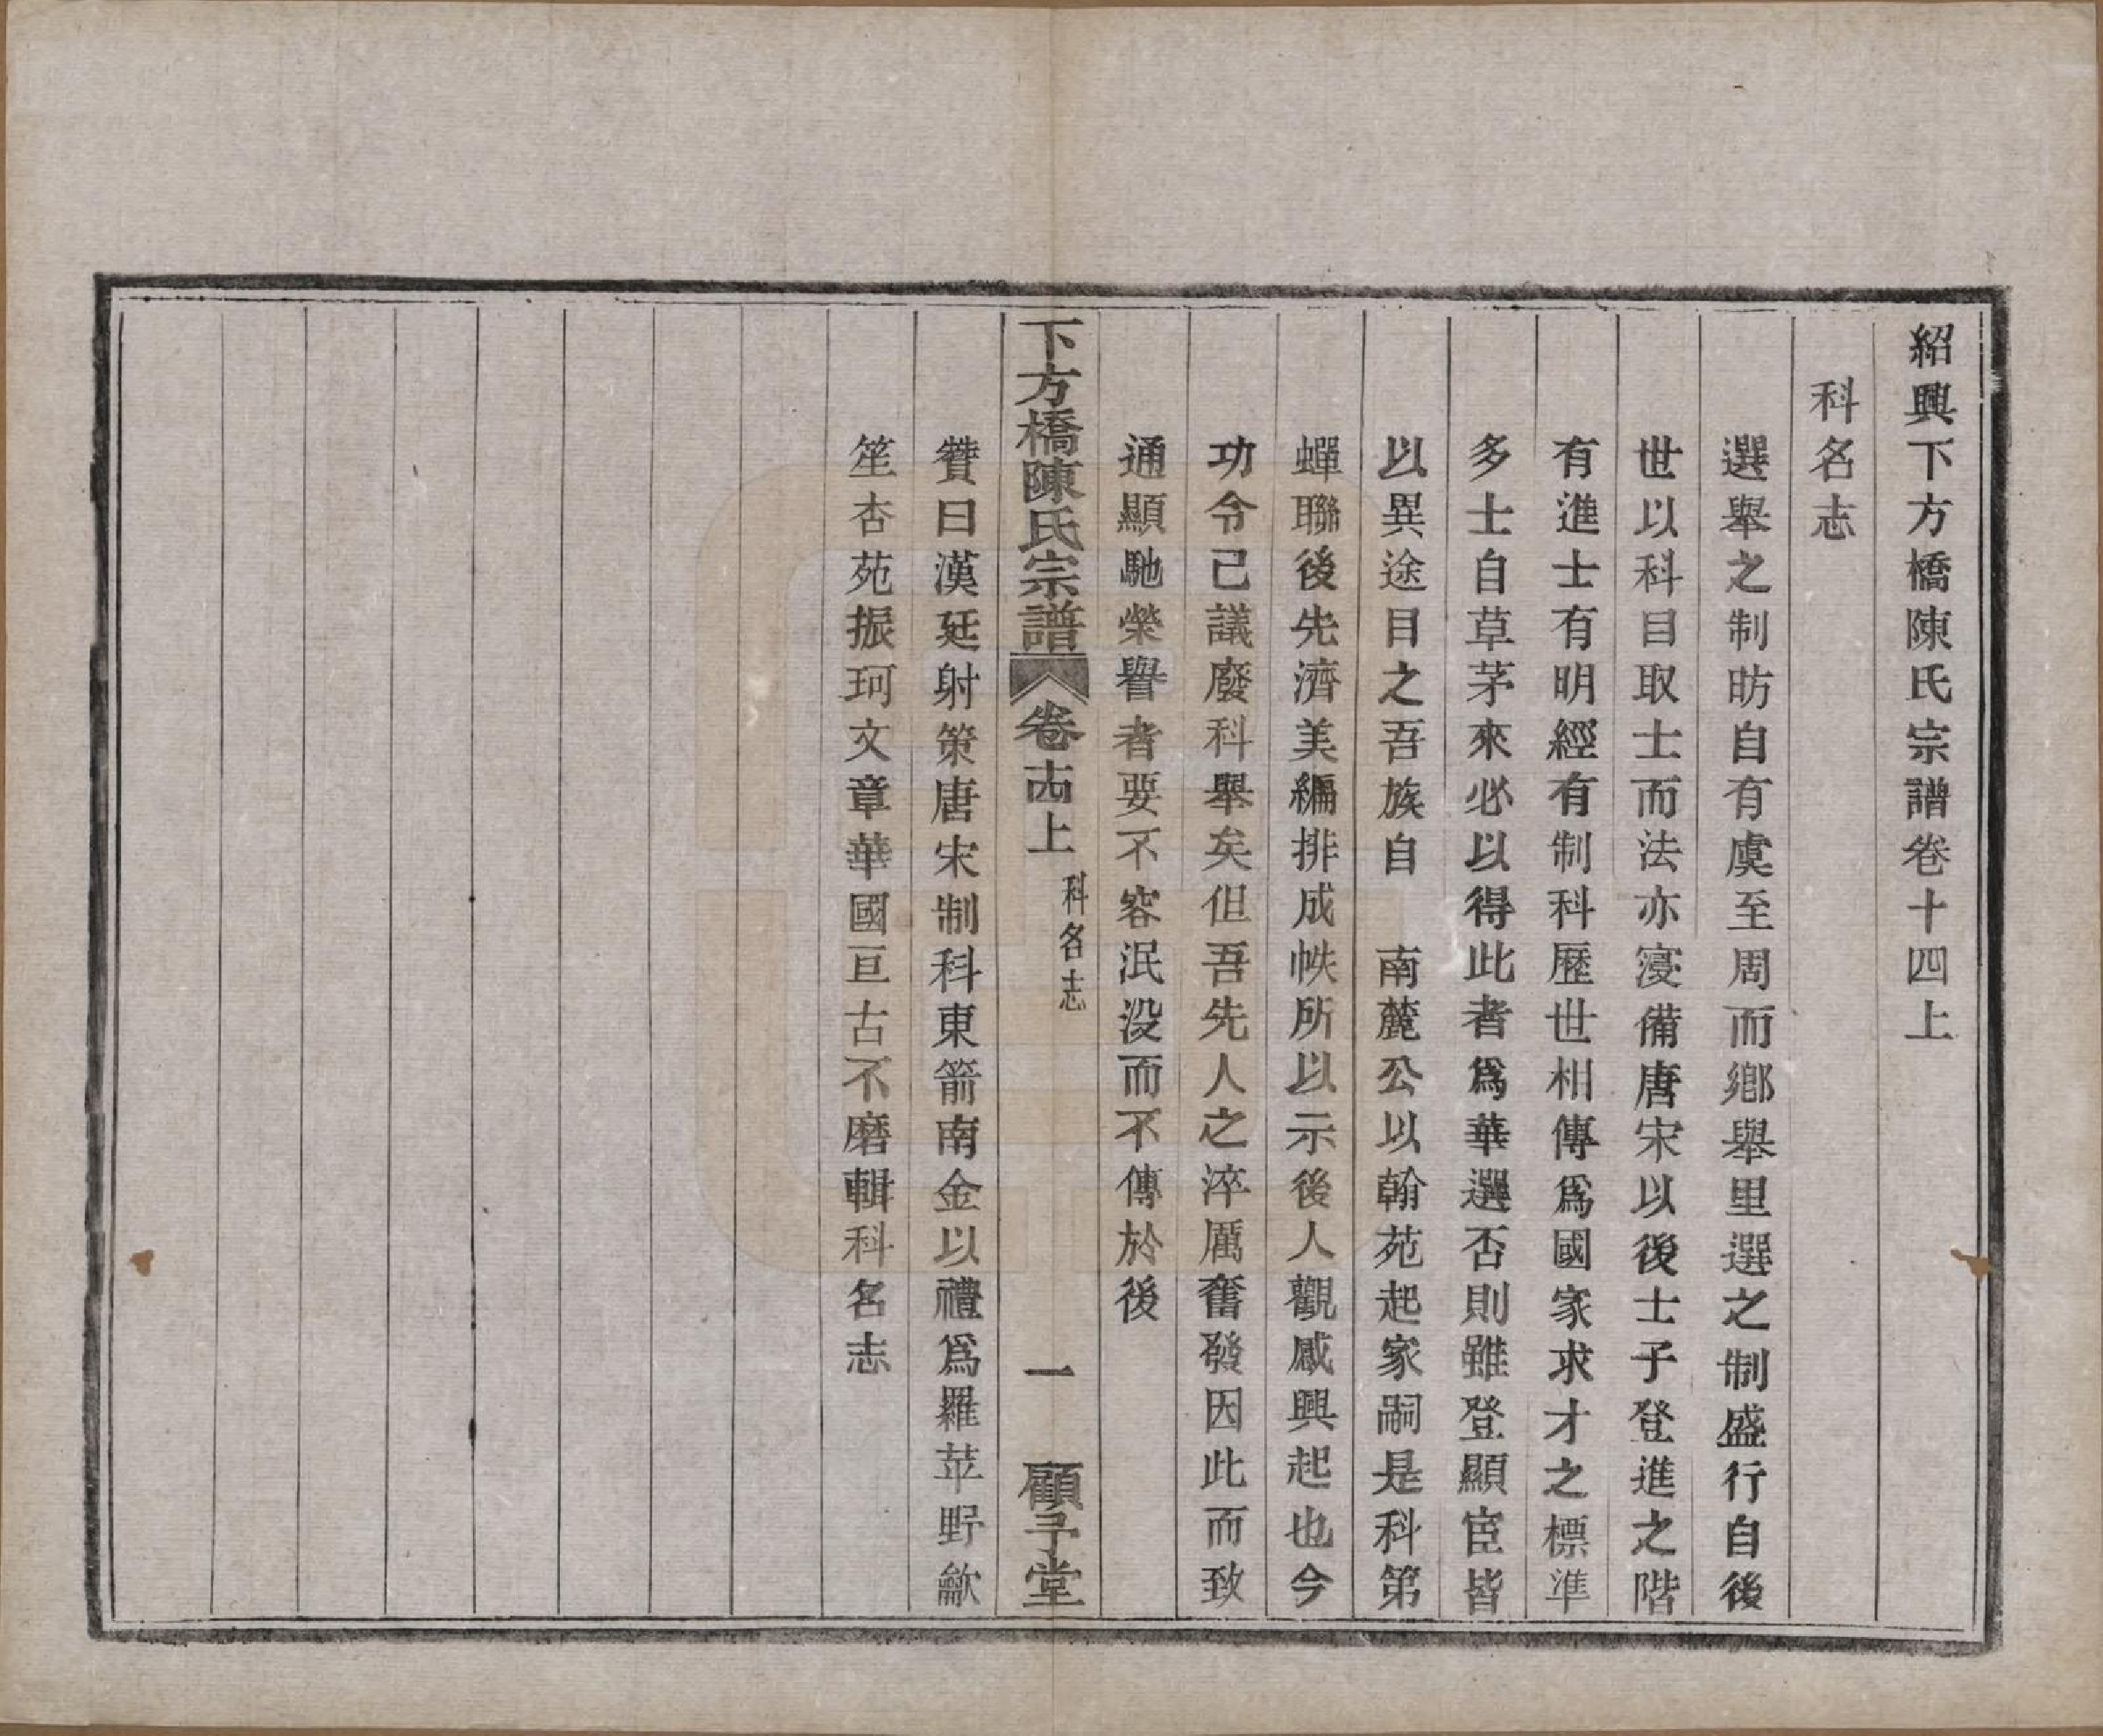 紹興下方橋陳氏宗譜卷十四上
科名志
選舉之制昉自有虞至周而鄉舉里選之制盛行自後
世以科目取士而法亦寖備唐宋以後士子登進之階
有進士有明經有制科歷世相傳爲國家求才之標準
多士自草茅來必以得此者爲華選否則雖登顯宦皆
以異途目之吾族自　南麓公以翰苑起家嗣是科第
蟬聯後先濟美編排成帙所以示後人觀感興起也今
功令已議廢科舉矣但吾先人之淬厲奮發因此而致
通顯馳榮譽者要不容泯沒而不傳於後
下方橋陳氏宗譜 卷十四上 科名志 一 顧予堂
贊曰漢廷射策唐宋制科東箭南金以禮爲羅苹野龡
笙杏苑振珂文章華國亘古不磨輯科名志